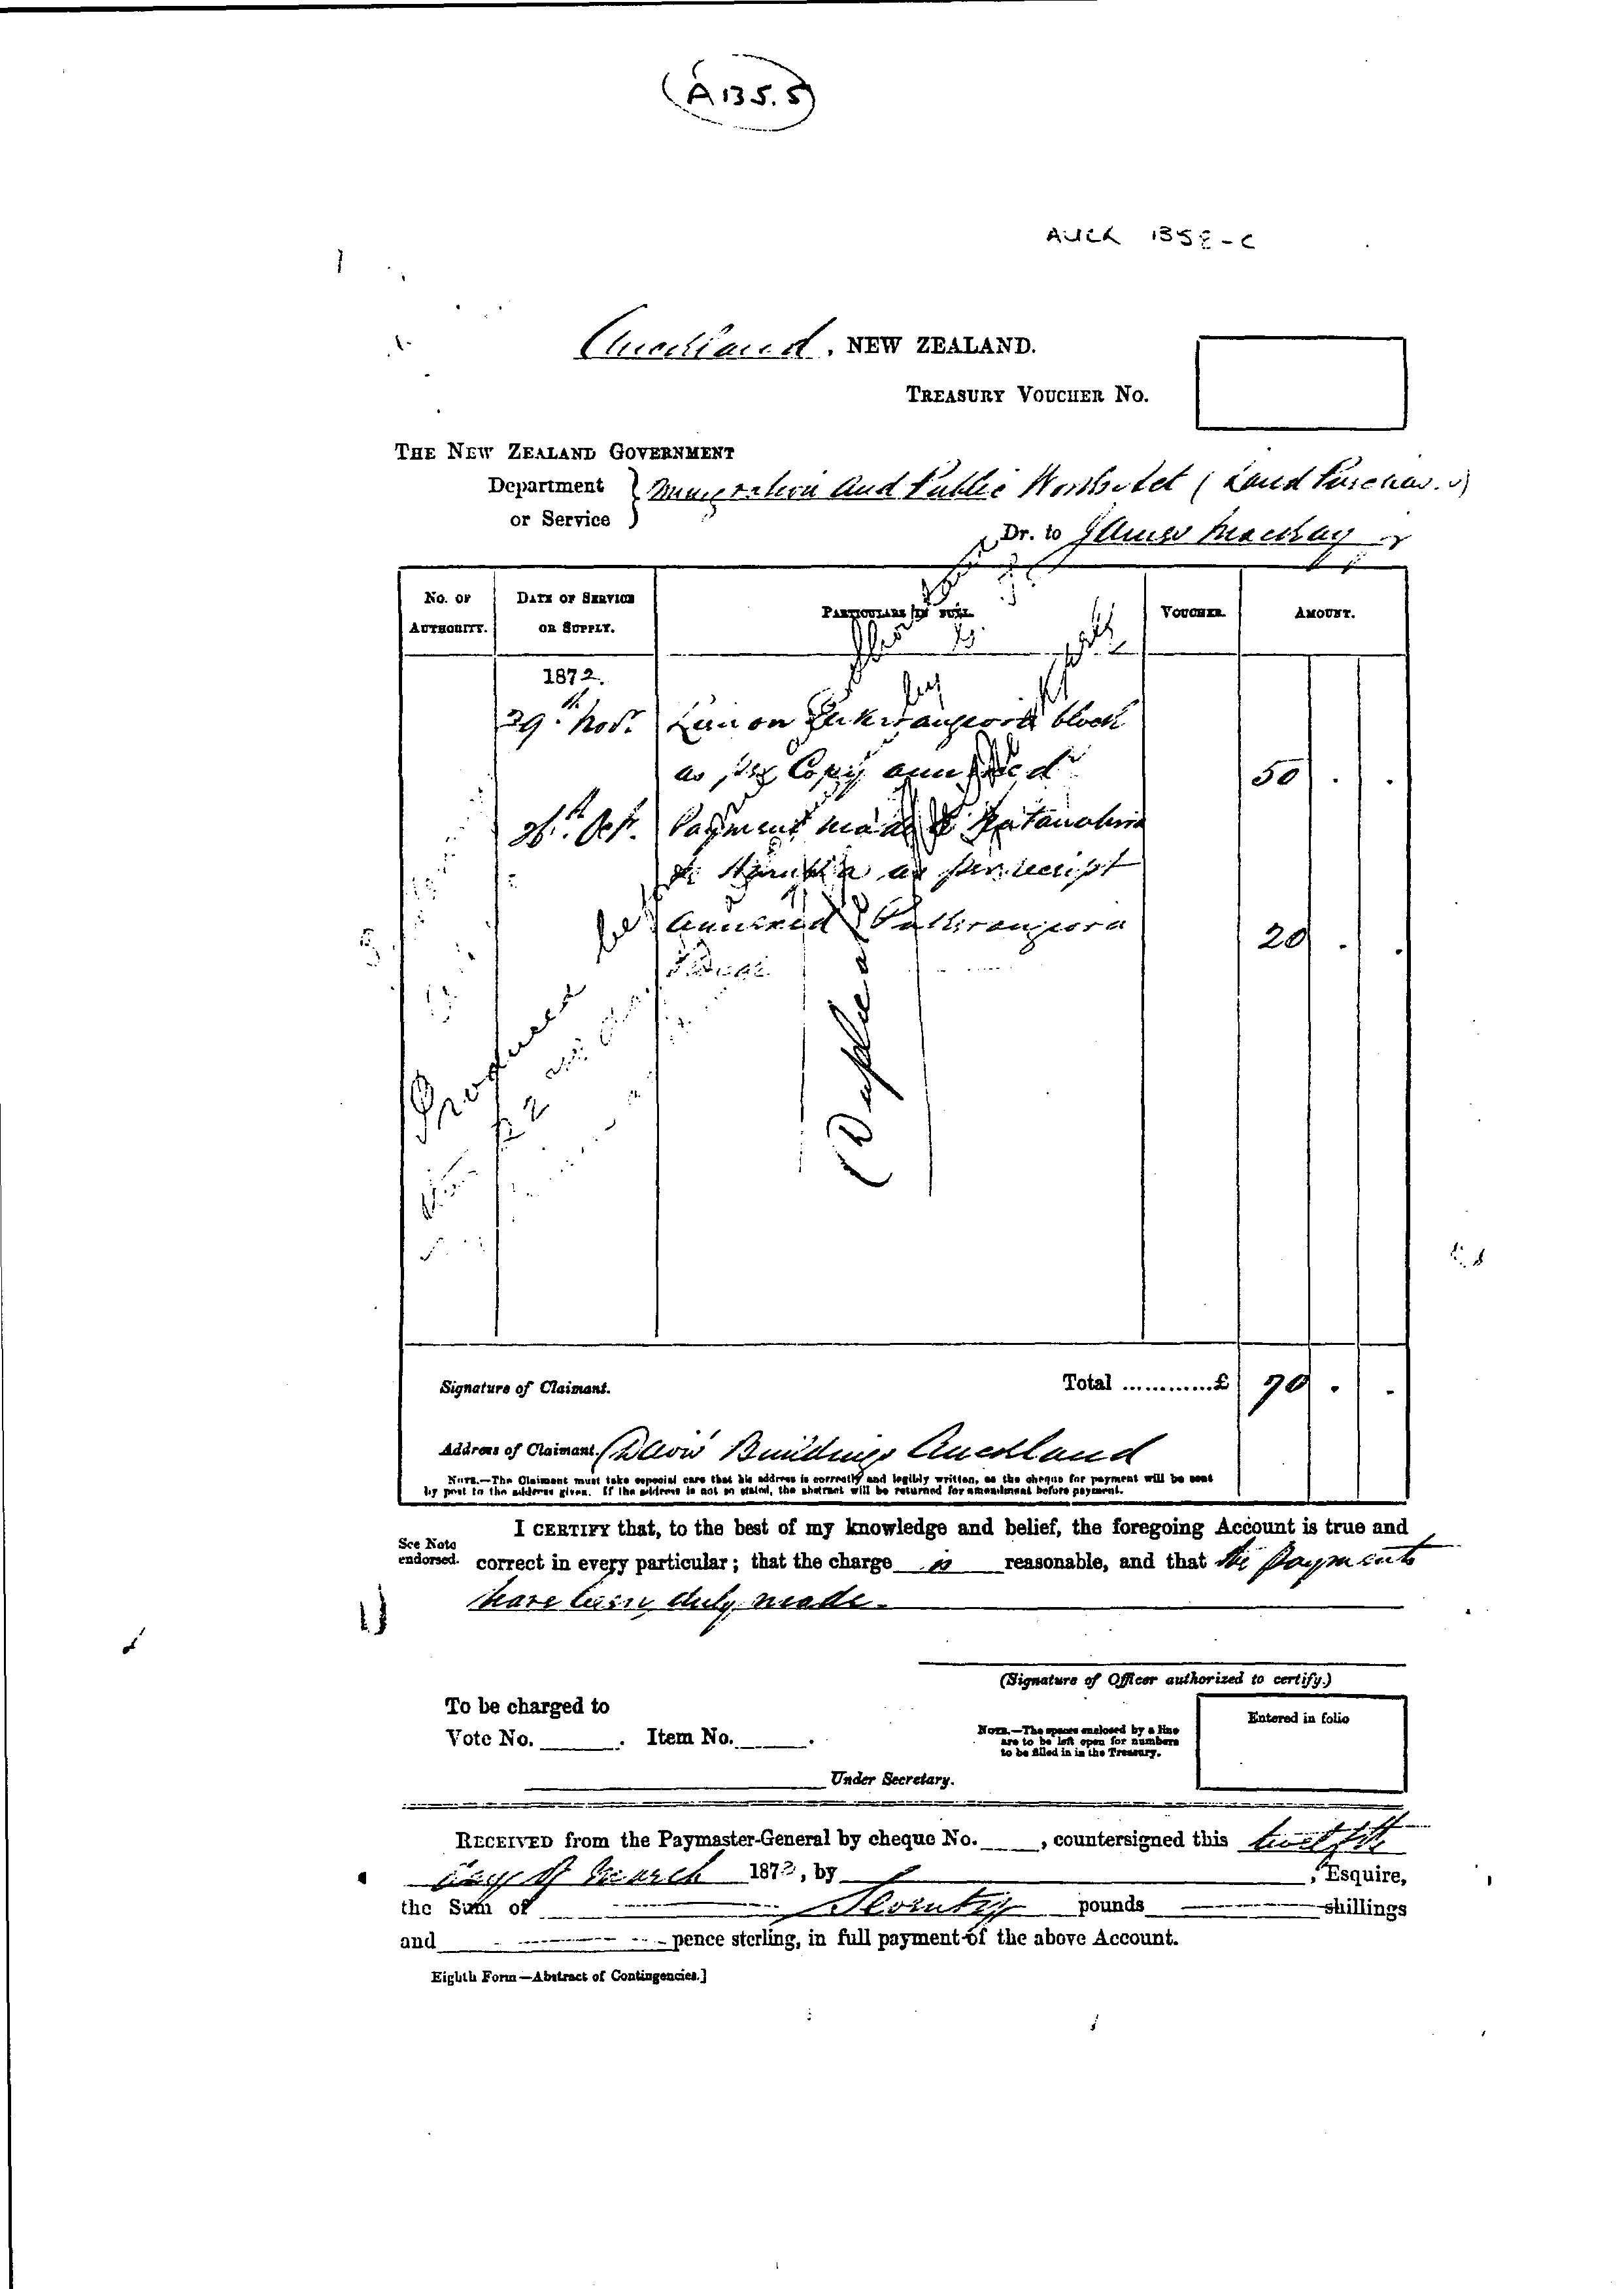 A135.5
AUCK 135 -C
Auckland, NEW ZEALAND.
TREASURY VOUCHER No.
THE NEW ZEALAND GOVERNMENT
Department or Service } Immigration and Public Works Act (Land Purchases)
Dr. to James Mackay Jr
No. OF AUTHORITY. DATE OF SERVICE OR SUPPLY. PARTICULARS IN FULL. VOUCHER. AMOUNT.
1872.
29th Nov. Lien on block
as per Copy annexed 50 . .
26th Oct. Payment made to
as per receipt
annexed 20 . .
Block
Produced
(Duplicate
Signature of Claimant. Total ............£ 70 . .
Address of Claimant. Buildings Auckland
NOTE.—The Claimant must take especial care that his address is correctly and legibly written, as the cheque for payment will be sent
by post to the address given. If the address is not so stated, the abstract will be returned for amendment before payment.
I CERTIFY that, to the best of my knowledge and belief, the foregoing Account is true and
See Note endorsed. correct in every particular; that the charge is reasonable, and that the payments
have been duly made.
(Signature of Officer authorized to certify.)
To be charged to
Vote No. ______. Item No. ______.
NOTE.—The spaces enclosed by a line are to be left open for numbers to be filled in in the Treasury.
Entered in folio
Under Secretary.
RECEIVED from the Paymaster-General by cheque No. ____, countersigned this twelfth
day of March 1873, by ______, Esquire,
the Sum of Seventy pounds ______ shillings
and ______ pence sterling, in full payment of the above Account.
Eighth Form—Abstract of Contingencies.]